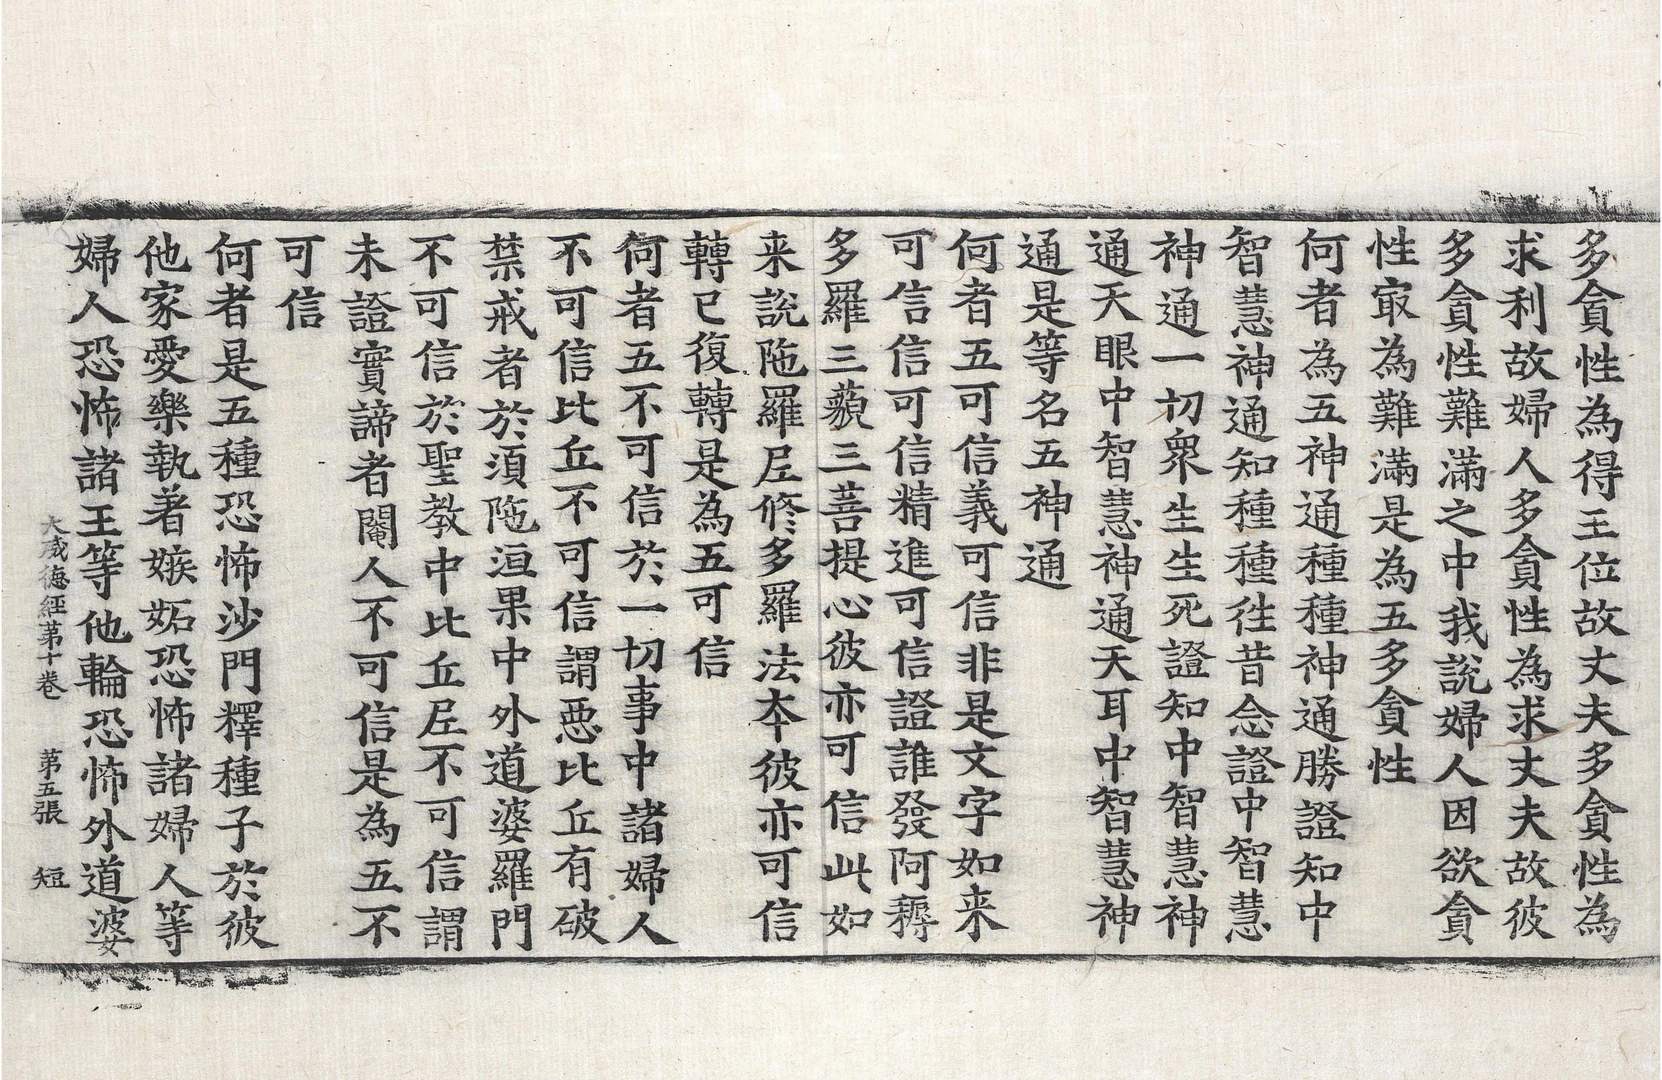 多貪性為得王位故丈夫多貪性為
求利故婦人多貪性為求丈夫故彼
多貪性難滿之中我説婦人因欲貪
性㝡為難滿是為五多貪性
何者為五神通種種神通勝證知中
智慧神通知種種徃昔念證中智慧
神通一切衆生生死證知中智慧神
通天眼中智慧神通天耳中智慧神
通是等名五神通
何者五可信義可信非是文字如来
可信信可信精進可信證誰發阿耨
多羅三藐三菩提心彼亦可信此如
来説陁羅尼修多羅法夲彼亦可信
轉已復轉是為五可信
何者五不可信於一切事中諸婦人
不可信比丘不可信謂惡比丘有破
禁戒者於須陁洹果中外道婆羅門
不可信於聖教中比丘尼不可信謂
未證實諦者閹人不可信是為五不
可信
何者是五種恐怖沙門釋種子於彼
他家愛樂執著嫉妬恐怖諸婦人等
婦人恐怖諸王等他輪恐怖外道婆
大威德經第十卷 第五張 短